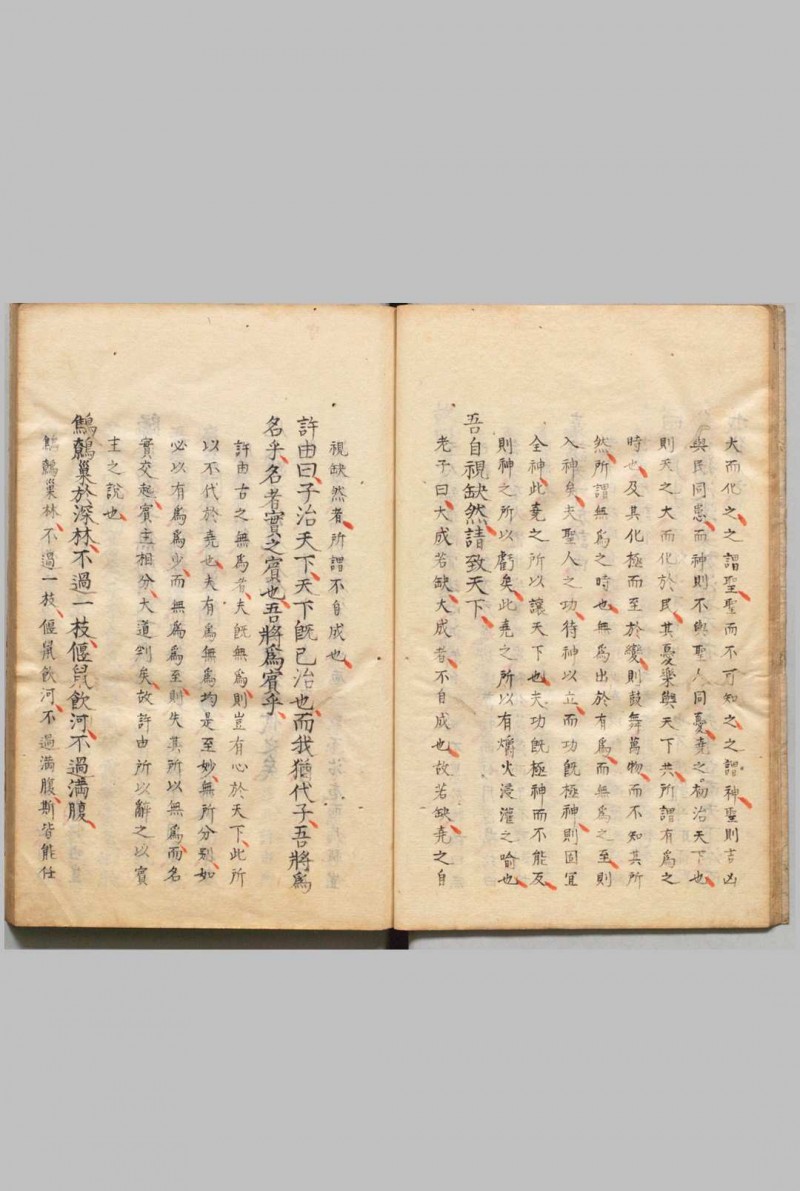 大而化之之謂聖聖而不可知之之謂神聖則吉凶
與民同患而神則不與聖人同憂堯之初治天下也
則天之大而化於民其憂樂與天下共所謂有為之
時也及其化極而至於變則鼓舞萬物而不知其所
然所謂無為之時也無為出於有為而無為之至則
入神矣夫聖人之功待神以立而功既極神則固宜
全神此堯之所以讓天下也夫功既極神而不能反
則神之所以虧矣此堯之所以有爝火浸灌之喻也
吾自視缺然請致天下
老子曰大成若缺大成者不自成也故若缺堯之自
視缺然者所謂不自成也
許由曰子治天下天下既已治也而我猶代子吾將為
名乎名者實之賓也吾將為賓乎
許由古之無為者夫既無為則豈有心於天下此所
以不代於堯也夫有為無為均是至妙無所分別如
必以有為為少而無為為至則失其所以無為而名
實交起賓主相分大道判矣故許由所以辭之以賓
主之說也
鷦鷯巢於深林不過一枝偃鼠飲河不過滿腹
鷦鷯巢林不過一枝偃鼠飲河不過滿腹斯皆能任